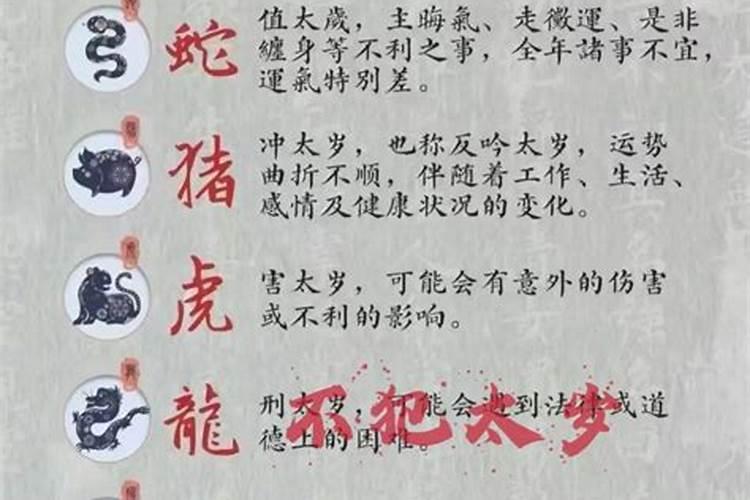 蛇
值太歲，主晦氣、走黴運、是非
纏身等不利之事，全年諸事不宜，
運氣特別差。
猪
冲太岁，也称反吟太岁，运势
曲折不顺，伴随着工作、生活、
感情及健康状况的变化。
虎
虎
害太岁，可能会有意外的伤害
或不利的影响。
龍
刑太岁，可能会遇到法律或道
德上的困难。
不犯太岁